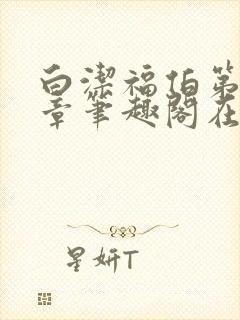 白潔福伯第
章筆趣閣在
星妍T